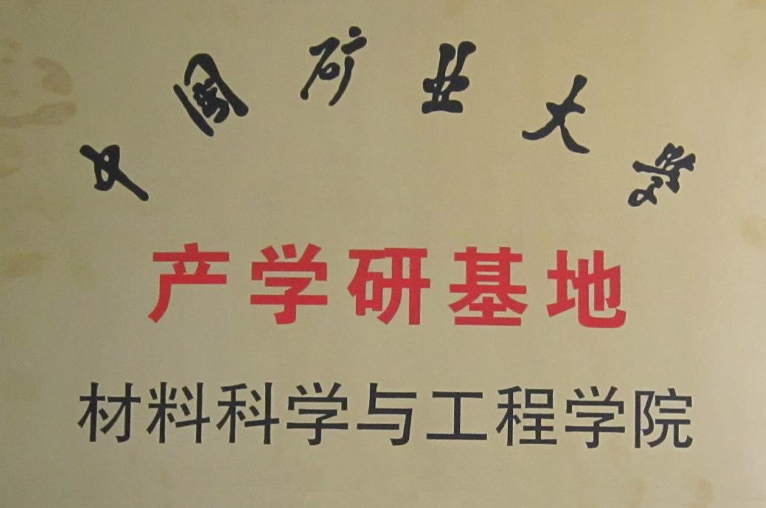 中国矿业大学
产学研基地
材料科学与工程学院